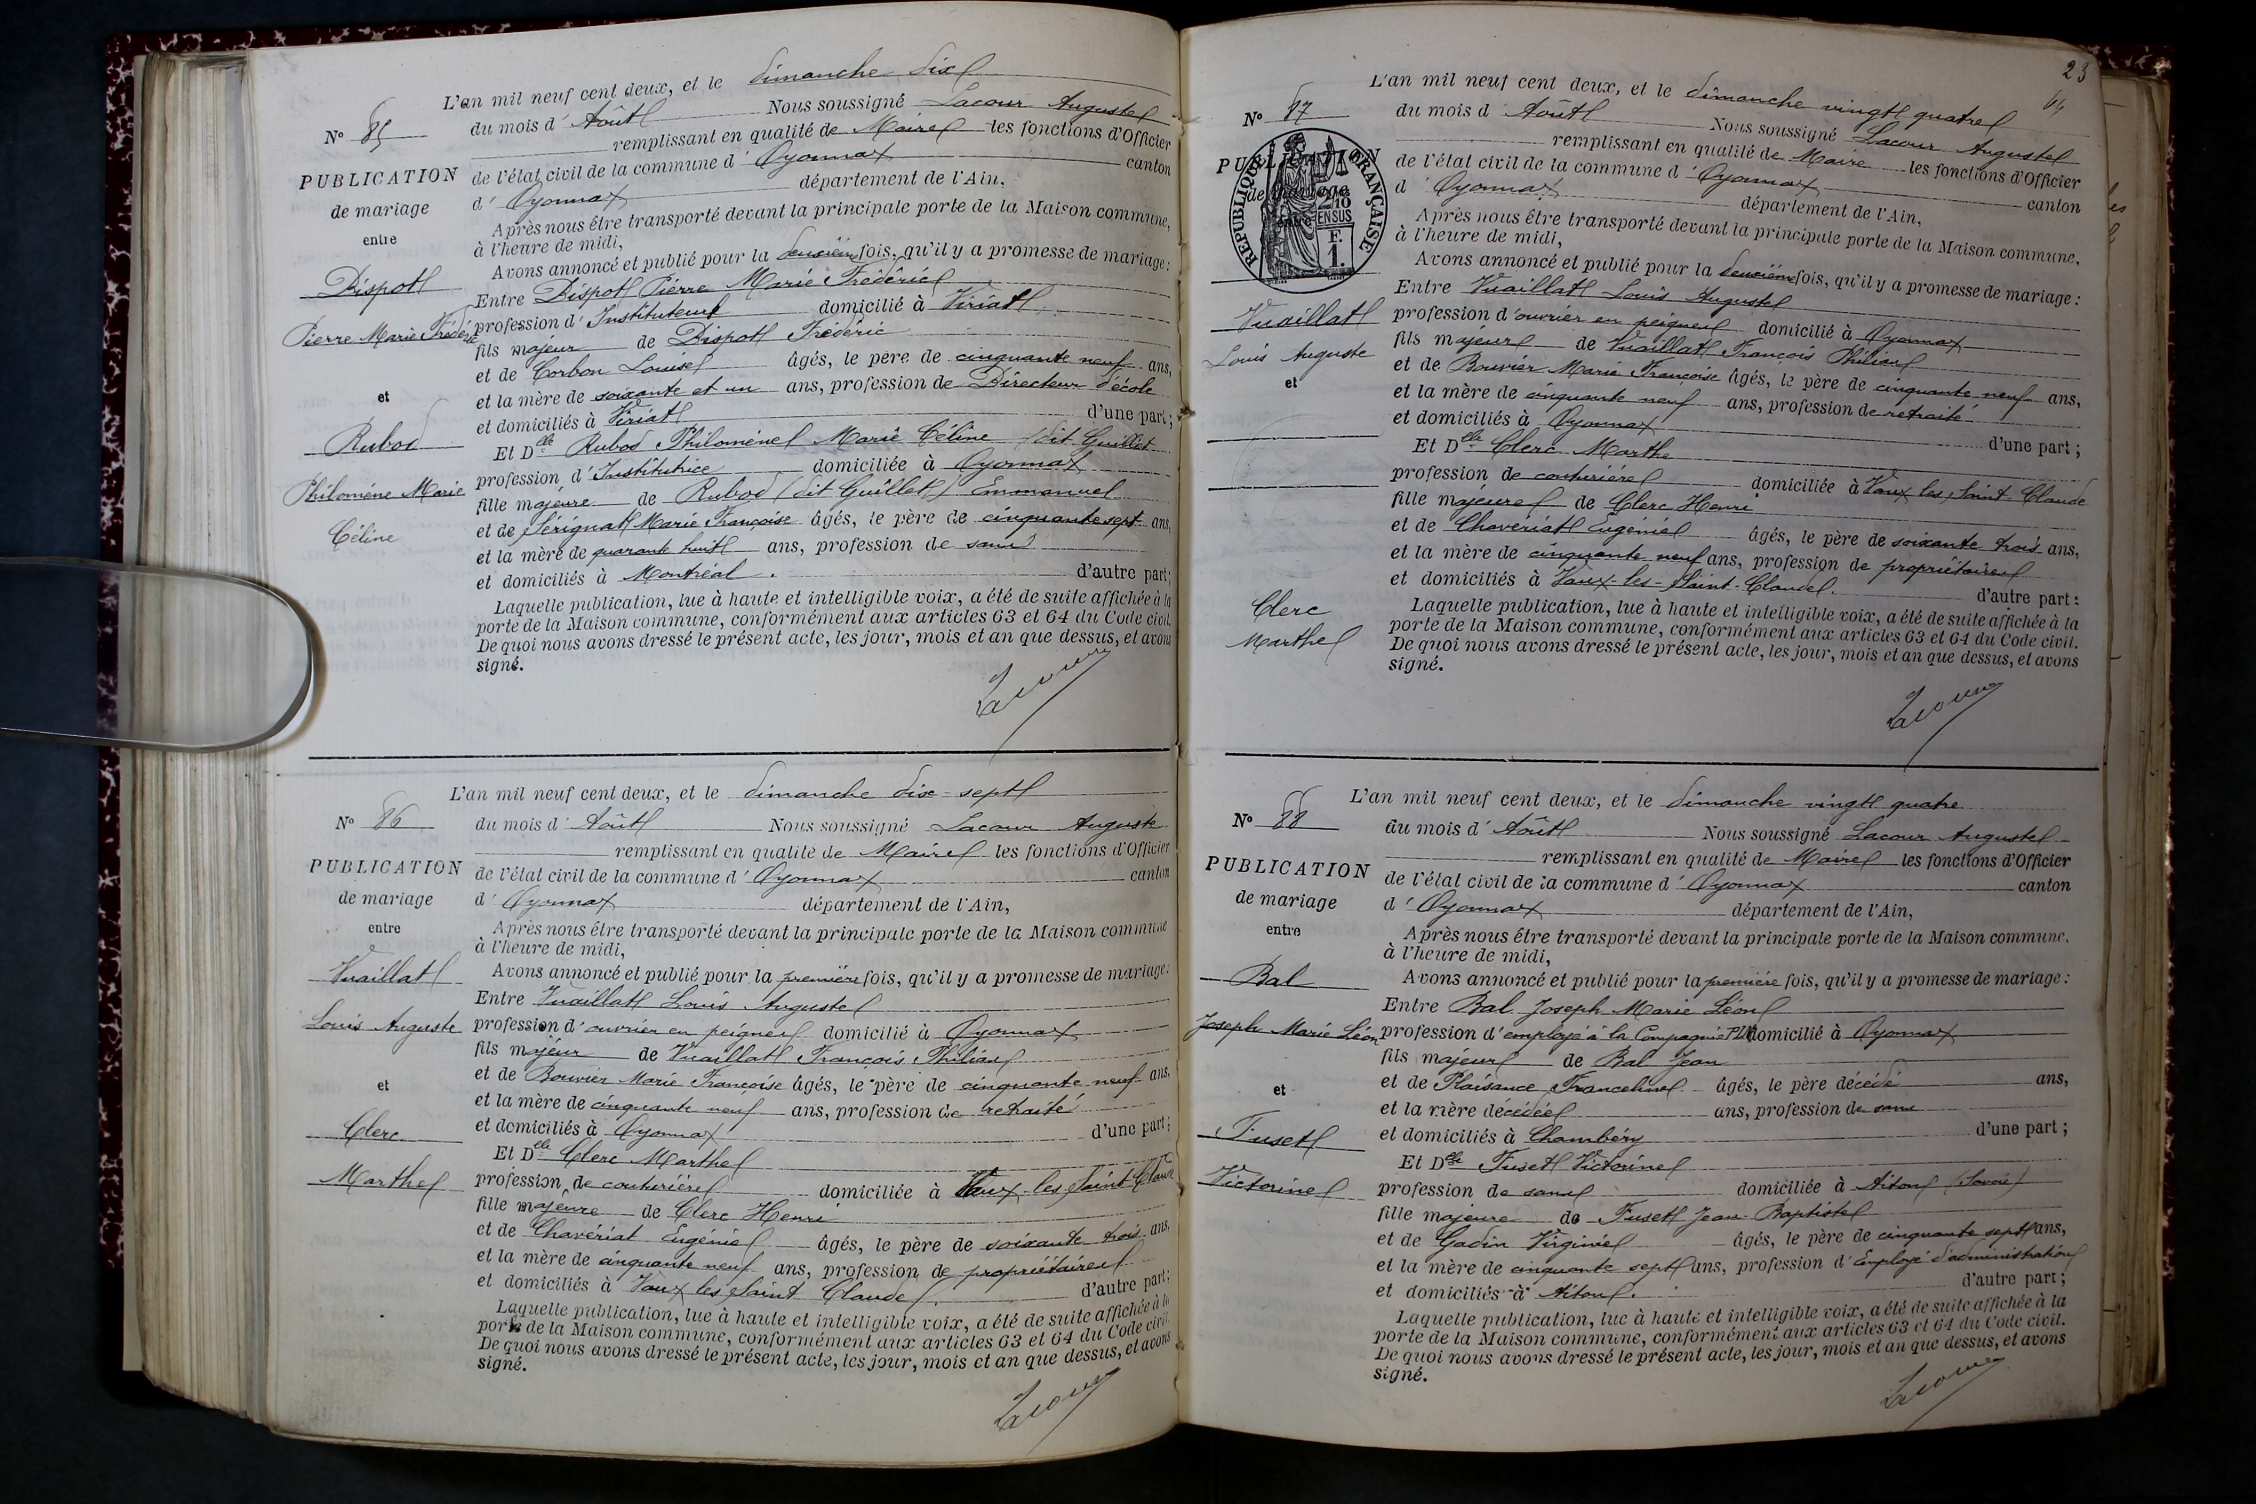 L'an mil neuf cent deux, et le dimanche dix
N° 85
du mois d'Août Nous soussigné Lacour Auguste
remplissant en qualité de Maire les fonctions d'Officier
PUBLICATION
de l'état civil de la commune d'Oyonnax canton
d'Oyonnax département de l'Ain,
de mariage
Après nous être transporté devant la principale porte de la Maison commune,
entre
à l'heure de midi,
Avons annoncé et publié pour la deuxième fois, qu'il y a promesse de mariage :
Dispot
Entre Dispot Pierre Marie Frédéric
Pierre Marie Frédéric
profession d'Instituteur domicilié à Viriat
fils majeur de Dispot Frédéric
et de Corbon Louise âgés, le père de cinquante neuf ans,
et
et la mère de soixante et un ans, profession de Directeur d'école
et domiciliés à Viriat d'une part ;
Rubod
Et Delle Rubod Philomène Marie Céline (dit Guillet
profession d'Institutrice domiciliée à Oyonnax
Philomène Marie
fille majeure de Rubod (dit Guillet) Emmanuel
Céline
et de Sérignat Marie Françoise âgés, le père de cinquante sept ans,
et la mère de quarante huit ans, profession de sans
et domiciliés à Montréal. d'autre part ;
Laquelle publication, lue à haute et intelligible voix, a été de suite affichée à la
porte de la Maison commune, conformément aux articles 63 et 64 du Code civil.
De quoi nous avons dressé le présent acte, les jour, mois et an que dessus, et avons
signé.
Lacour
L'an mil neuf cent deux, et le dimanche dix-sept
N° 86
du mois d'Août Nous soussigné Lacour Auguste
remplissant en qualité de Maire les fonctions d'Officier
PUBLICATION
de l'état civil de la commune d'Oyonnax canton
de mariage
d'Oyonnax département de l'Ain,
entre
Après nous être transporté devant la principale porte de la Maison commune
à l'heure de midi,
Vuaillat
Avons annoncé et publié pour la première fois, qu'il y a promesse de mariage :
Entre Vuaillat Louis Auguste
Louis Auguste
profession d'ouvrier en peignes domicilié à Oyonnax
fils majeur de Vuaillat François Philias
et
et de Bouvier Marie Françoise âgés, le père de cinquante neuf ans,
et la mère de cinquante neuf ans, profession de retraité
Clerc
et domiciliés à Oyonnax d'une part ;
Et Delle Clerc Marthe
Marthe
profession de couturière domiciliée à Vaux-les-Saint-Claude
fille majeure de Clerc Henri
et de Chavériat Eugénie âgés, le père de soixante trois ans,
et la mère de cinquante neuf ans, profession de propriétaires
et domiciliés à Vaux les Saint Claude. d'autre part ;
Laquelle publication, lue à haute et intelligible voix, a été de suite affichée à la
porte de la Maison commune, conformément aux articles 63 et 64 du Code civil.
De quoi nous avons dressé le présent acte, les jour, mois et an que dessus, et avons
signé.
Lacour
23
L'an mil neuf cent deux, et le dimanche vingt quatre
N° 87
du mois d'Août Nous soussigné Lacour Auguste
remplissant en qualité de Maire les fonctions d'Officier
PUBLICATION
de l'état civil de la commune d'Oyonnax canton
de mariage
d'Oyonnax département de l'Ain,
entre
RÉPUBLIQUE FRANÇAISE
2/10
EN SUS
F.
1.
Après nous être transporté devant la principale porte de la Maison commune,
à l'heure de midi,
Avons annoncé et publié pour la deuxième fois, qu'il y a promesse de mariage :
Vuaillat
Entre Vuaillat Louis Auguste
profession d'ouvrier en peignes domicilié à Oyonnax
Louis Auguste
fils majeur de Vuaillat François Philias
et
et de Bouvier Marie Françoise âgés, le père de cinquante neuf ans,
et la mère de cinquante neuf ans, profession de retraité
et domiciliés à Oyonnax d'une part ;
Et Delle Clerc Marthe
profession de couturière domiciliée à Vaux les Saint-Claude
fille majeure de Clerc Henri
et de Chavériat Eugénie âgés, le père de soixante trois ans,
et la mère de cinquante neuf ans, profession de propriétaires
et domiciliés à Vaux-les-Saint-Claude. d'autre part :
Clerc
Marthe
Laquelle publication, lue à haute et intelligible voix, a été de suite affichée à la
porte de la Maison commune, conformément aux articles 63 et 64 du Code civil.
De quoi nous avons dressé le présent acte, les jour, mois et an que dessus, et avons
signé.
Lacour
L'an mil neuf cent deux, et le dimanche vingt quatre
N° 88
du mois d'Août Nous soussigné Lacour Auguste
remplissant en qualité de Maire les fonctions d'Officier
PUBLICATION
de l'état civil de la commune d'Oyonnax canton
de mariage
d'Oyonnax département de l'Ain,
entre
Après nous être transporté devant la principale porte de la Maison commune.
à l'heure de midi,
Bal
Avons annoncé et publié pour la première fois, qu'il y a promesse de mariage :
Entre Bal Joseph Marie Léon
Joseph Marie Léon
profession d'employé à la Compagnie PLM domicilié à Oyonnax
fils majeur de Bal Jean
et
et de Plaisance Franceline âgés, le père décédé ans,
et la mère décédée ans, profession de sans
Fuset
et domiciliés à Chambéry d'une part ;
Et Delle Fuset Victorine
Victorine
profession de sans domiciliée à Aiton (Savoie)
fille majeure de Fuset Jean-Baptiste
et de Gadin Virginie âgés, le père de cinquante sept ans,
et la mère de cinquante sept ans, profession d'Employé d'administration
et domiciliés à Aiton. d'autre part ;
Laquelle publication, lue à haute et intelligible voix, a été de suite affichée à la
porte de la Maison commune, conformément aux articles 63 et 64 du Code civil.
De quoi nous avons dressé le présent acte, les jour, mois et an que dessus, et avons
signé.
Lacour